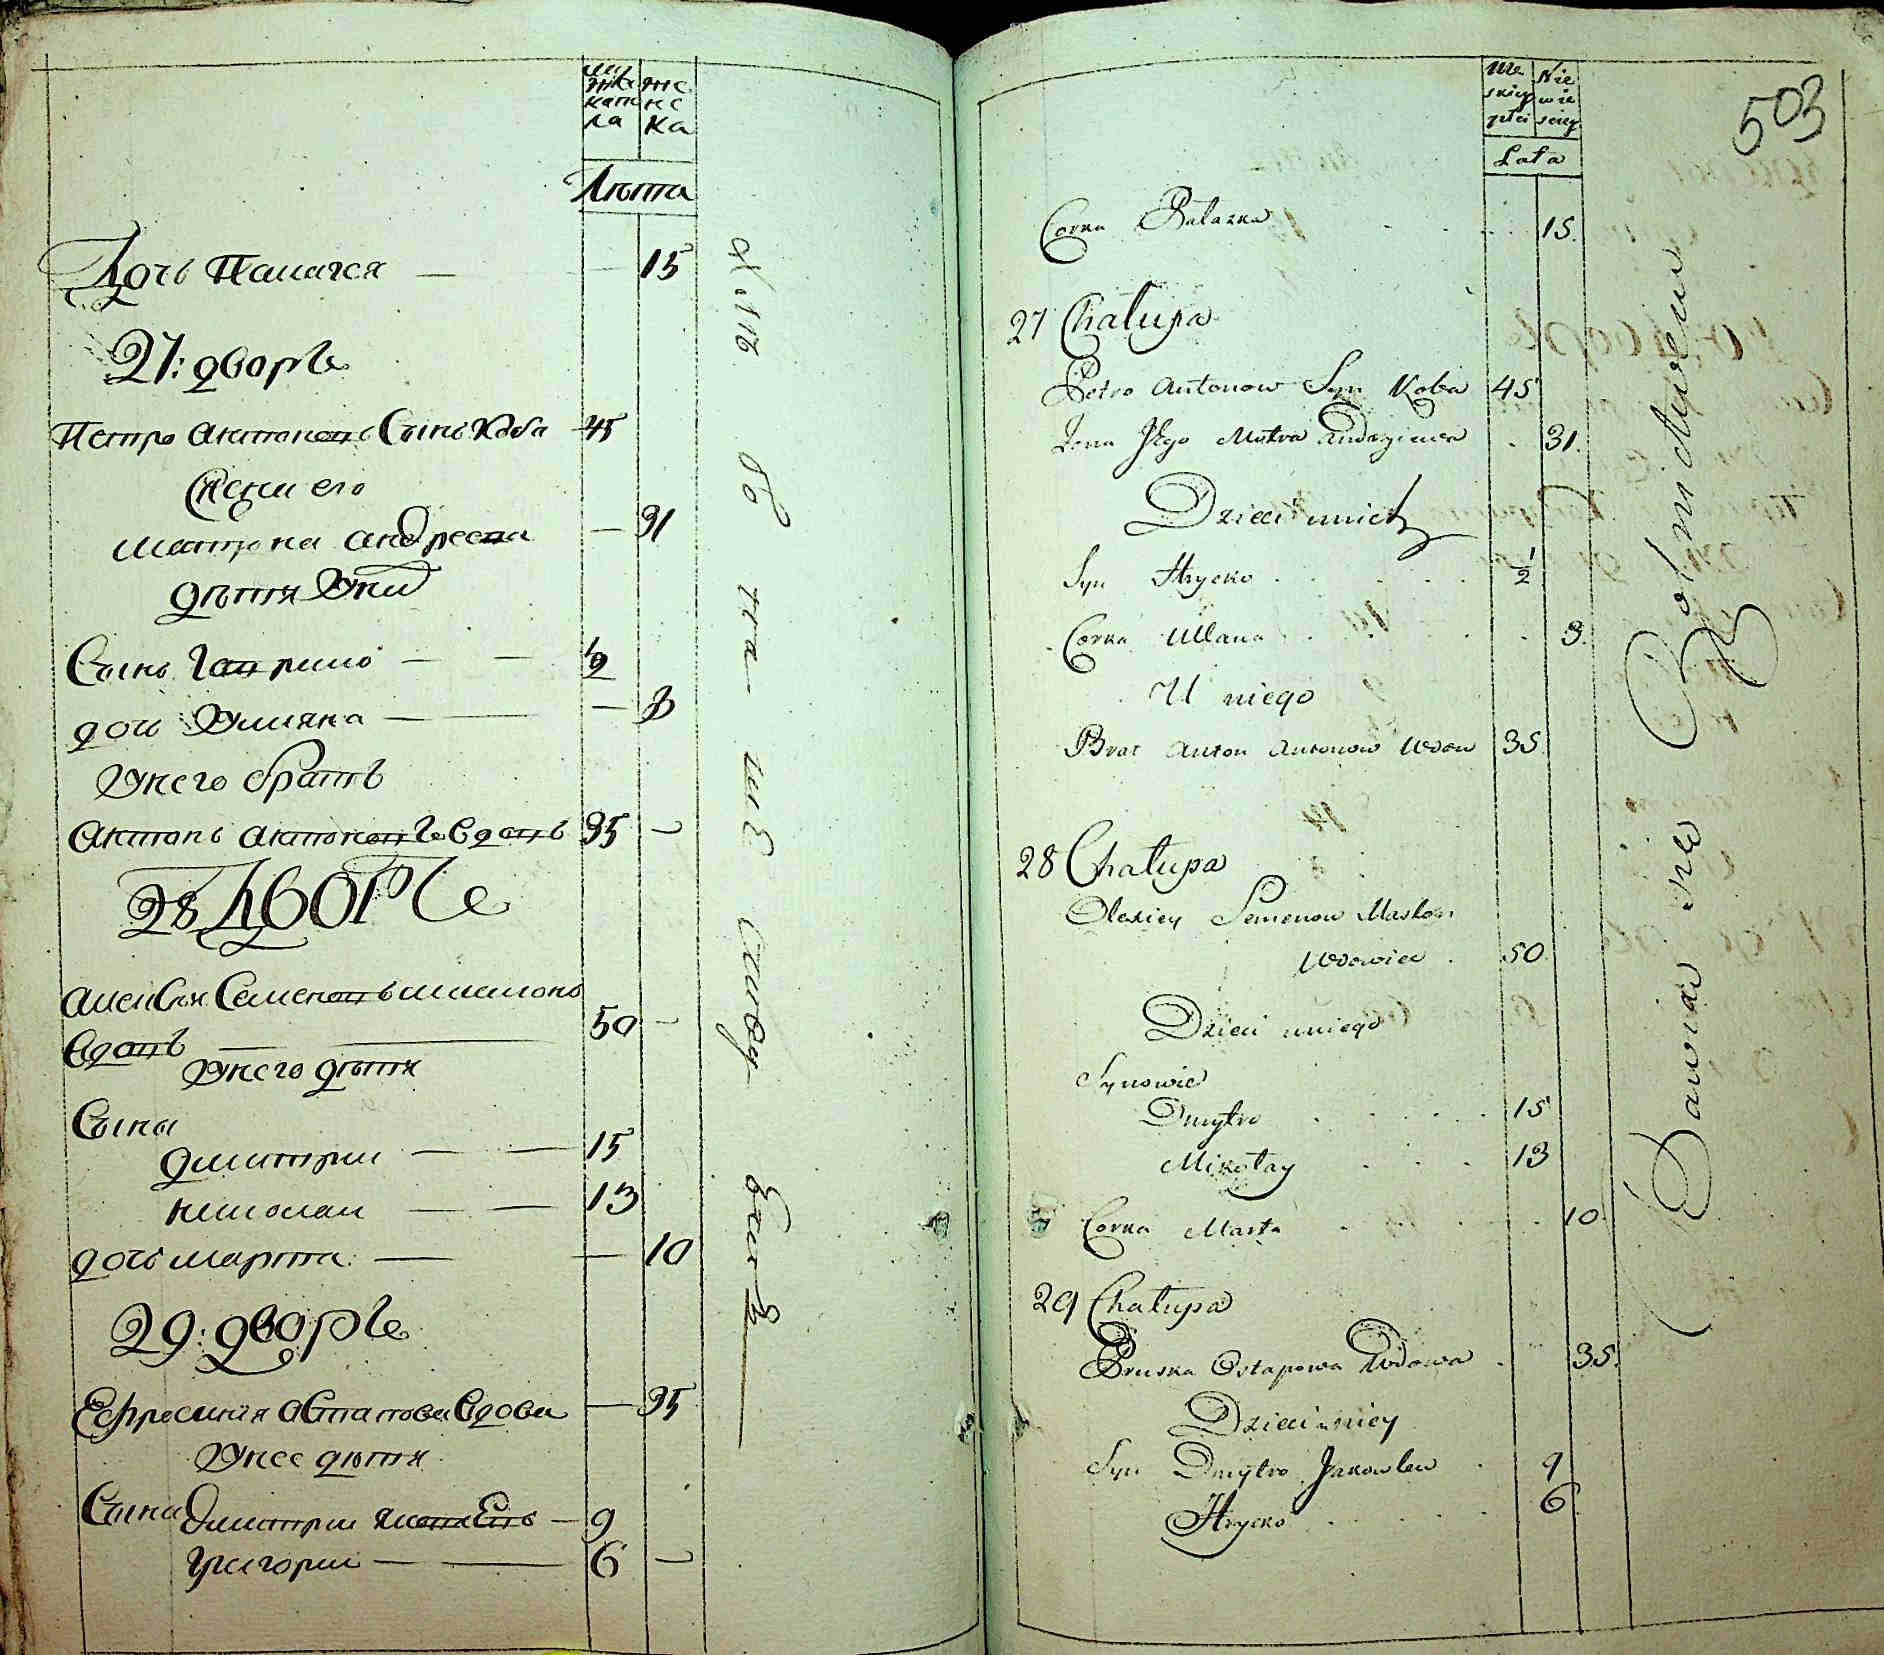 мужеска пола
женска
Лѣта
Дочь Палагея — 15
27: дворъ
Петро Антоновъ Сынъ Коба 45
Жена его
Матрона Андреева — 31
дѣти у них
Сынъ Гаврило — — 1/2
дочь Улияна — — 3
У него братъ
Антонъ Антоновъ Вдовъ 35 —
28 Дворъ
Алексѣй Семеновъ
Вдовъ — — 50 —
У него дѣти
Сыны
Дмитрии — — 15
Николаи — — 13
дочь Марта — — 10
29: дворъ
Ефросиния Остапова Вдова — 35
У нее дѣти
Сыны Дмитрии Яковлевъ — 9
Григории — — 6 —
Męskiey płci
Niewiesciey
Lata
503
Corka Palazka 15.
27 Chałupa
Petro Antonow Syn Koba 45
Zona Jego Motra Andrziiewa 31.
Dzieci unich
Syn Hrycko 1/2
Corka Ullana 3.
U niego
Brat Anton Antonow Wdow 35.
28 Chałupa
Olexiey Semenow
Wdowiec 50
Dzieci uniego
Synowie
Dmytro 15
Mikołay 13
Corka Marta 10.
29 Chałupa
Pruska Ostapowa Wdowa 35.
Dzieci uniey
Syn Dmytro Jakowlew 9
Hrycko 6